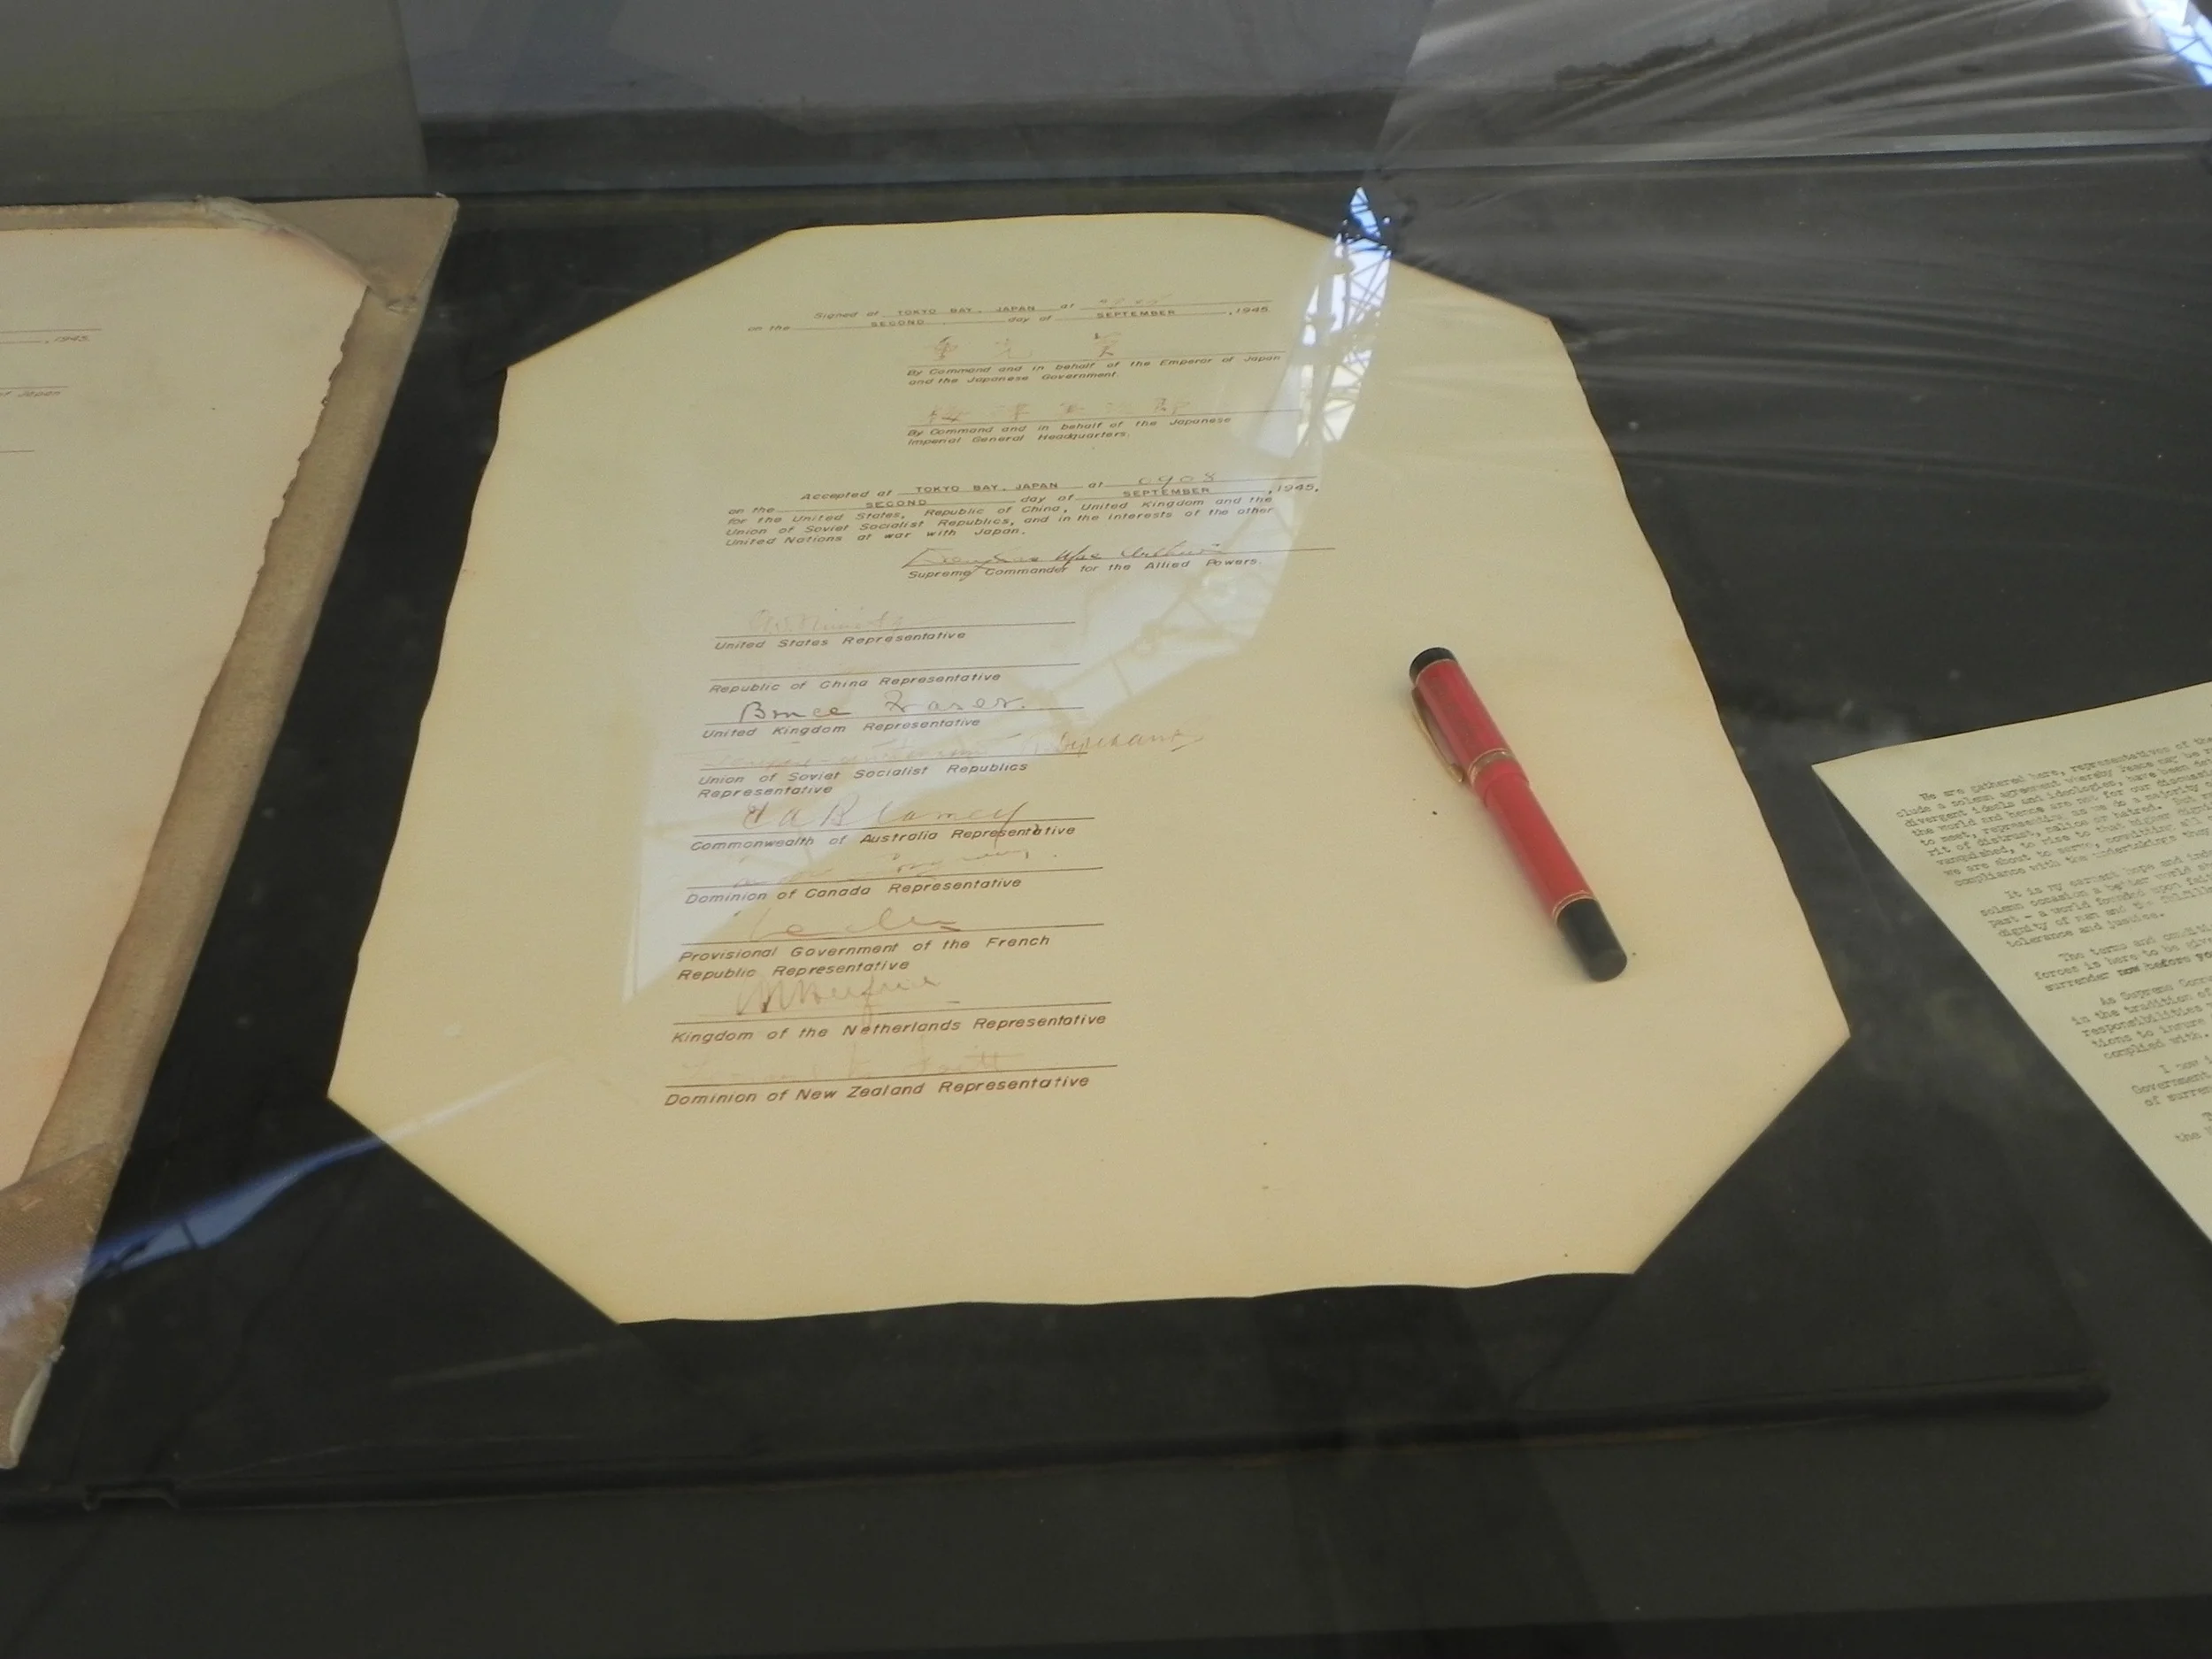 , 1945.
of Japan
Signed at TOKYO BAY, JAPAN at
on the SECOND day of SEPTEMBER, 1945.
重光葵
By Command and in behalf of the Emperor of Japan
and the Japanese Government.
梅津美治郎
By Command and in behalf of the Japanese
Imperial General Headquarters.
Accepted at TOKYO BAY, JAPAN at 0908
on the SECOND day of SEPTEMBER, 1945,
for the United States, Republic of China, United Kingdom and the
Union of Soviet Socialist Republics, and in the interests of the other
United Nations at war with Japan.
Douglas MacArthur
Supreme Commander for the Allied Powers.
United States Representative
Republic of China Representative
Bruce Fraser.
United Kingdom Representative
Union of Soviet Socialist Republics
Representative
T A Blamey
Commonwealth of Australia Representative
Dominion of Canada Representative
Provisional Government of the French
Republic Representative
Kingdom of the Netherlands Representative
Dominion of New Zealand Representative
We are gathered here, representatives of the
clude a solemn agreement whereby peace may be
divergent ideals and ideologies, have been
the world and hence are not for our discussion
to meet, representing as we do a majority of
rit of distrust, malice or hatred. But
vanquished, to rise to that higher
we are about to serve, committing all
compliance with the undertakings they
It is my earnest hope and
solemn occasion a better world
past - a world founded upon
dignity of man and the
tolerance and justice.
The terms and
forces is here to be
surrender now before you
As Supreme
in the tradition of
responsibilities
tions to insure
complied with.
I now
Government
of
the